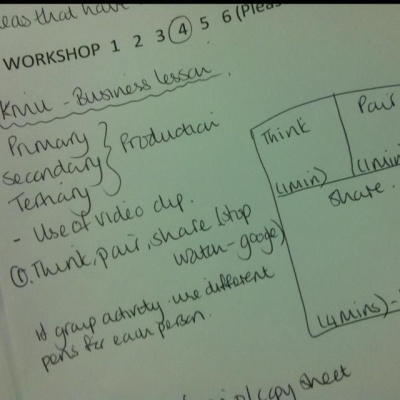 eas that have
WORKSHOP 1 2 3 4 5 6 (Pleas
- Business lesson
Primary
Secondary
Tertiary
Production
- Use of video clip.
Think, pair, share (stop
watch - google)
group activity. use different
pens for each person.
Think
(1min)
Pair
(1min
Share.
(4mins) -
copy sheet